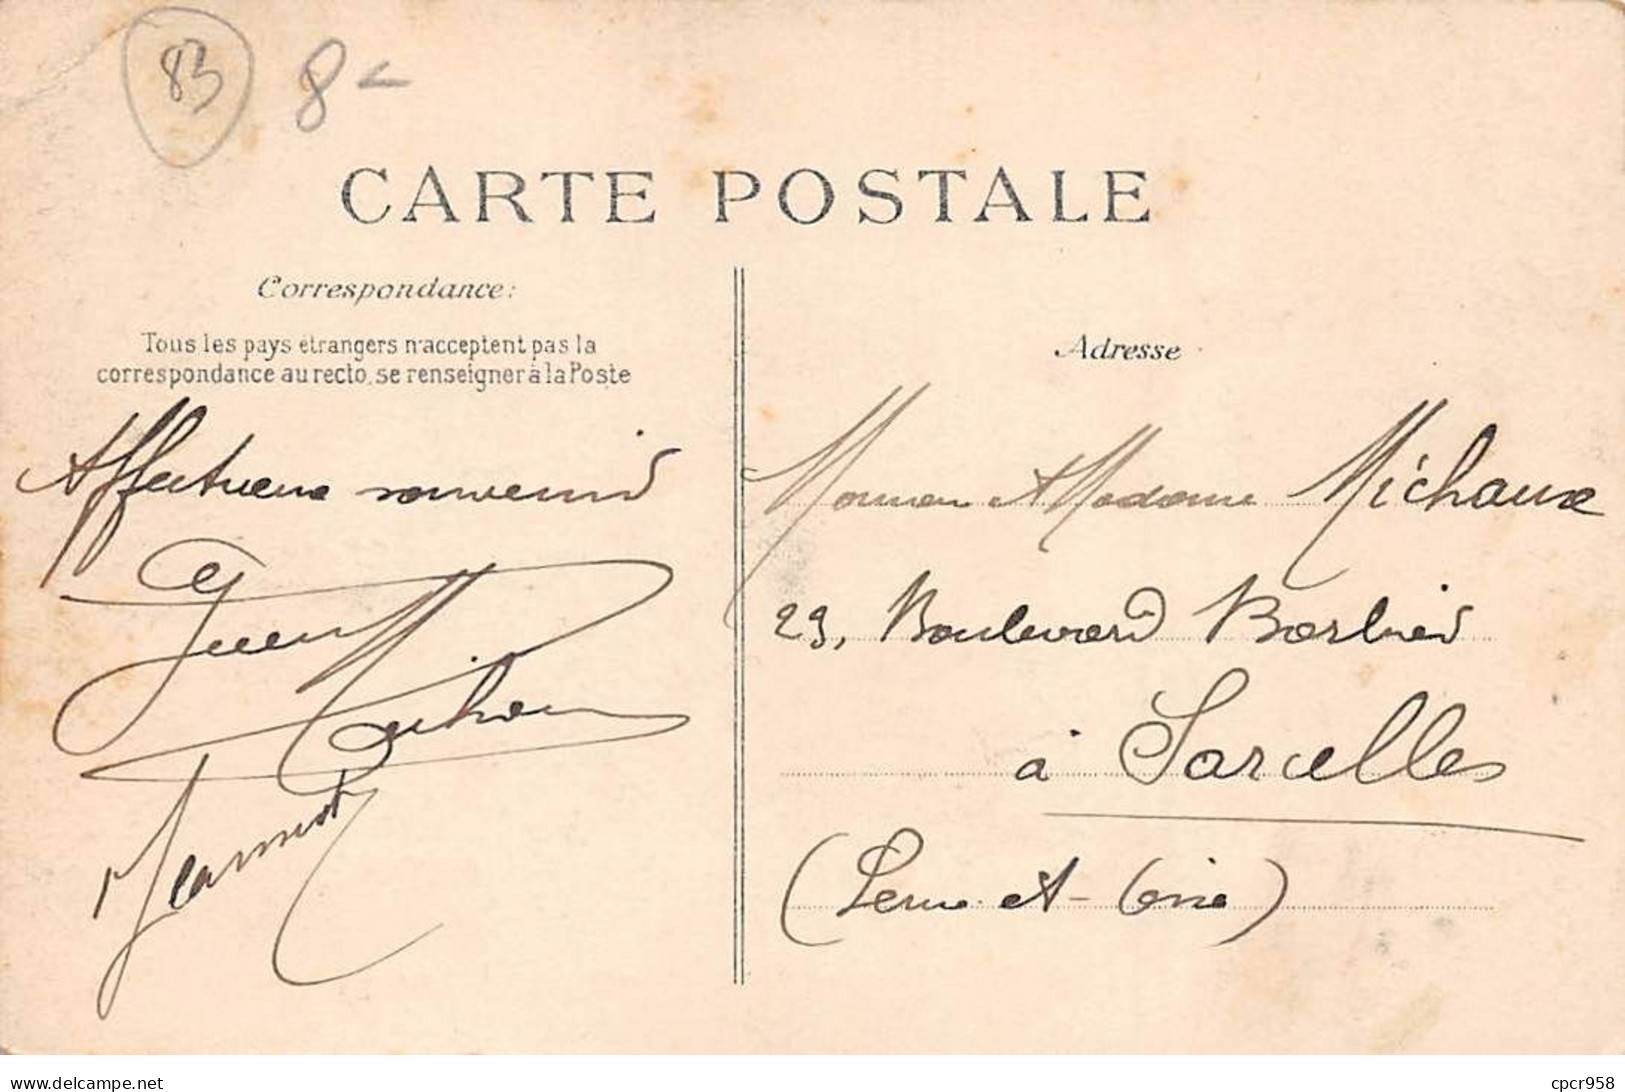 83 8
CARTE POSTALE
Correspondance:
Tous les pays étrangers n'acceptent pas la
correspondance au recto, se renseigner à la Poste
Affectueux souvenir
Jeannot
Adresse
Monsieur et Madame Michaux
29, Boulevard Barbier
à Sarcelles
(Seine-et-Oise)
delcampe.net
cpcr958